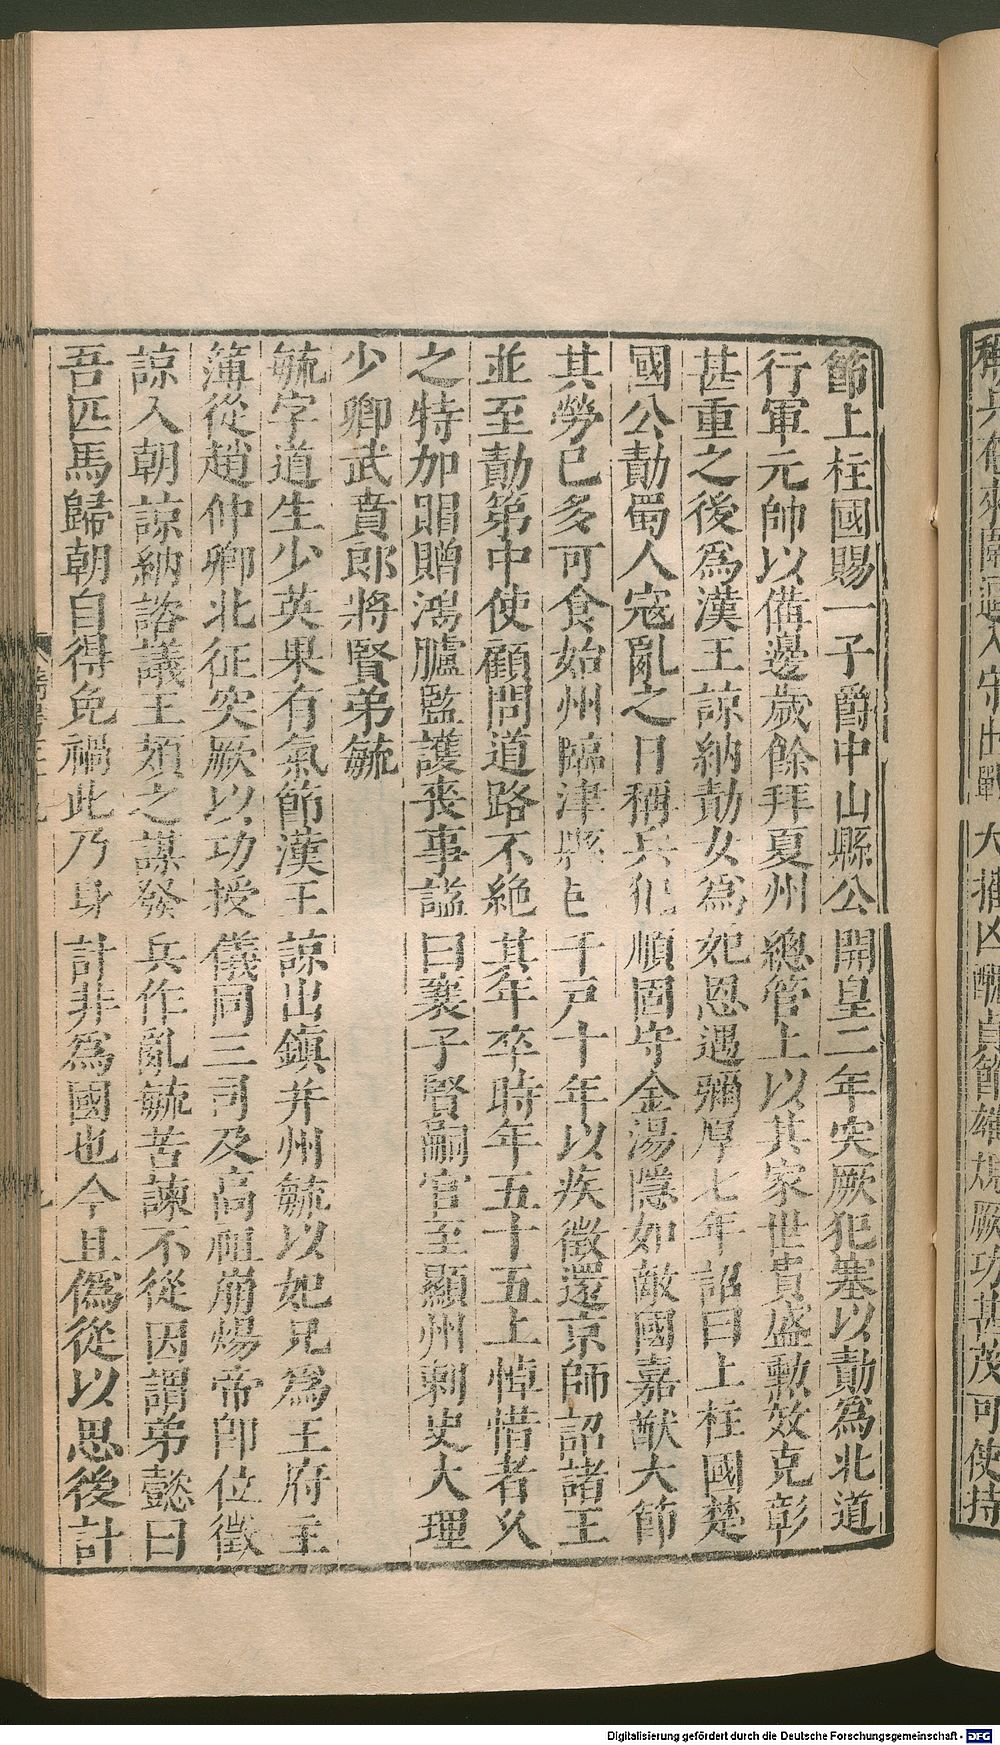 節上柱國賜一子爵中山縣公開皇二年突厥犯塞以勣爲北道
行軍元帥以備邊歲餘拜夏州總管上以其家世貴盛勲效克彰
甚重之後爲漢王諒納勣女爲妃恩遇彌厚七年詔曰上柱國楚
國公勣蜀人寇亂之日稱兵犯順固守金湯隱如敵國嘉猷大節
其勞已多可食始州臨津縣邑千戸十年以疾徵還京師詔諸王
並至勣第中使顧問道路不絶其年卒時年五十五上悼惜者久
之特加賵贈鴻臚監護喪事謚曰襄子賢嗣官至顯州刺史大理
少卿武賁郎將賢弟毓
毓字道生少英果有氣節漢王諒出鎭并州毓以妃兄爲王府主
簿從趙仲卿北征突厥以功授儀同三司及高祖崩煬帝卽位徵
諒入朝諒納諮議王頍之謀發兵作亂毓苦諫不從因謂弟懿曰
吾匹馬歸朝自得免禍此乃身計非爲國也今且僞從以思後計
大摧凶醜貞節雄規厥功甚茂可使持
Digitalisierung gefördert durch die Deutsche Forschungsgemeinschaft - DFG